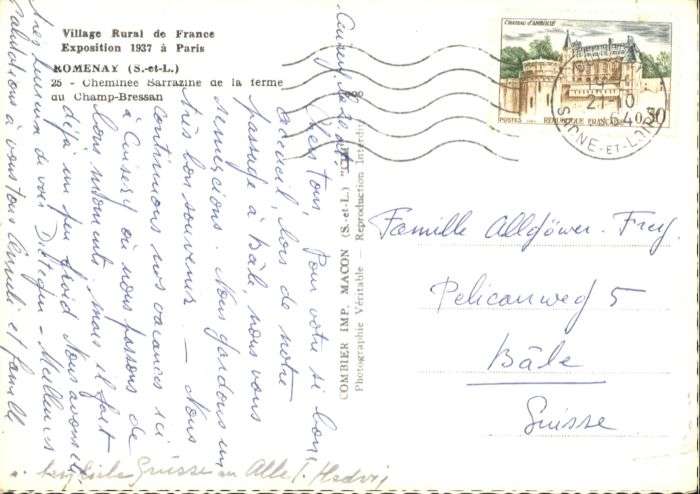 Village Rural de France
Exposition 1937 à Paris
ROMENAY (S.-et-L.)
25 - Cheminée Sarrazine de la ferme
du Champ-Bressan
CHATEAU D'AMBOISE
POSTES
REPUBLIQUE FRANÇAISE
0,30
21-10
SAONE-ET-LOIRE
COMBIER IMP. MACON (S.-et-L.)
Photographie Véritable - Reproduction Interdite
Famille Allgöwer-Frey
Pelicanweg 5
Bâle
Suisse
Cuisery, le
Chers tous, Pour votre si bon
accueil, lors de notre
passage à Bâle, nous vous
remercions. Nous gardons un
très bon souvenir. — Nous
continuons nos vacances ici
à Cuisery où nous passons de
bons moments, mais il fait
déjà un peu froid. Nous avons été
très heureux de voir - Meilleures
salutations à vous tous et famille
Grüsse an Alle